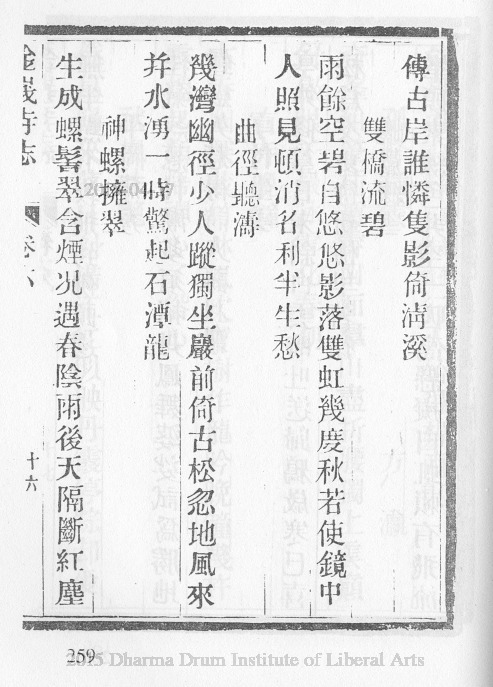 傳古岸誰憐隻影倚清溪
雙橋流碧
雨餘空碧自悠悠影落雙虹幾度秋若使鏡中
人照見頓消名利半生愁
曲徑聽濤
幾灣幽徑少人蹤獨坐巖前倚古松忽地風來
幷水湧一時驚起石潭龍
神螺擁翠
生成螺髻翠含煙況遇春陰雨後天隔斷紅塵
寺志
卷六
十六
259
2015 Dharma Drum Institute of Liberal Arts